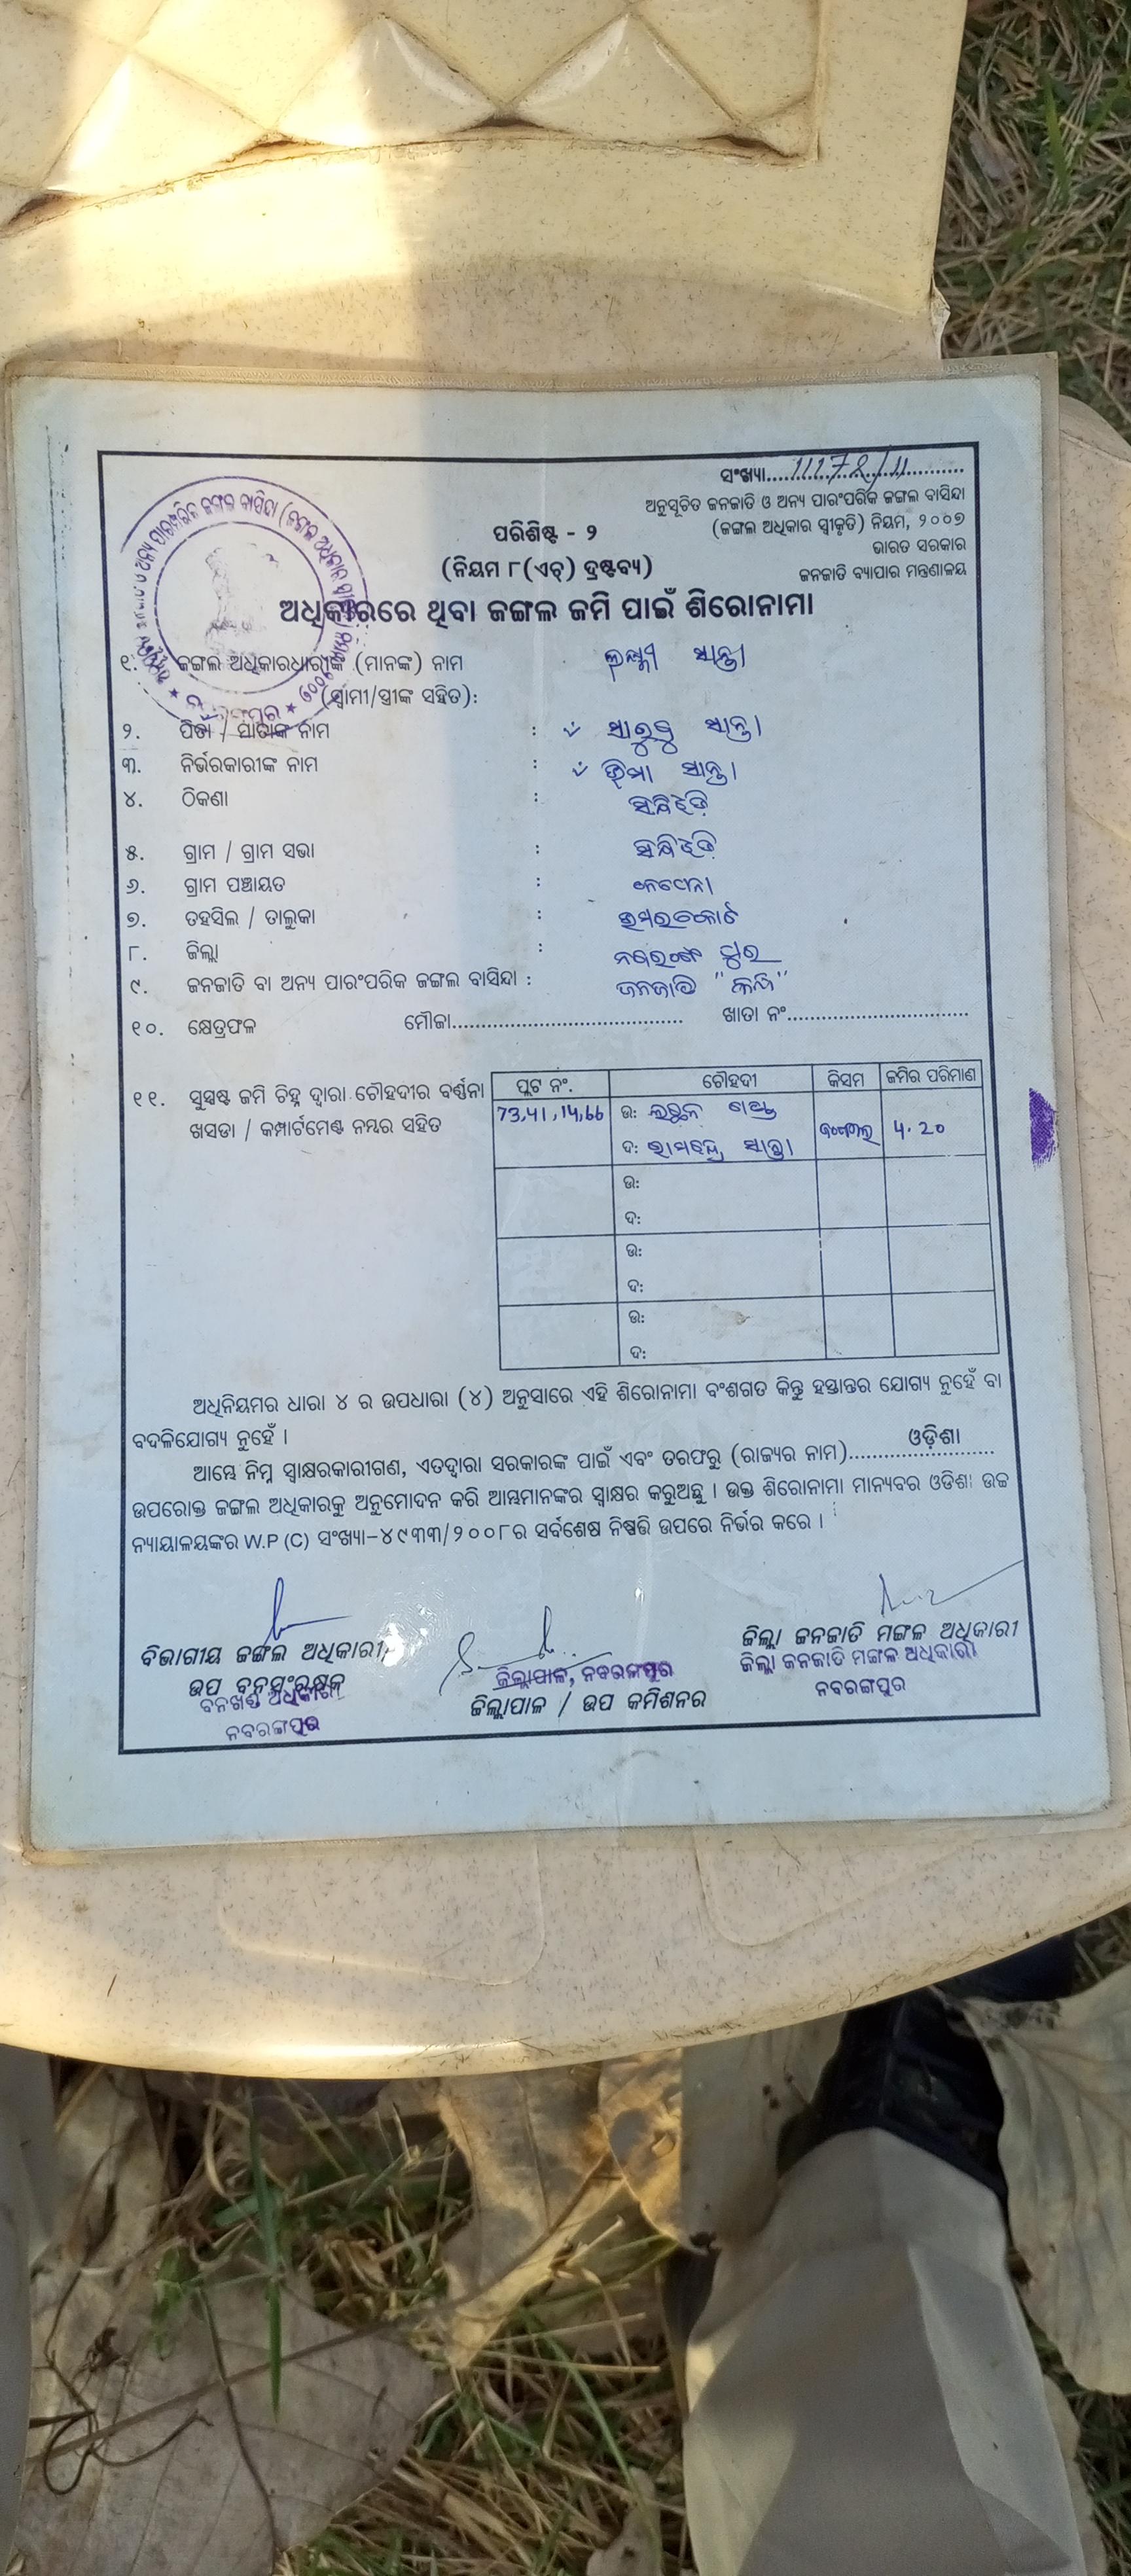 ସଂଖ୍ୟା....11172/11....
ଅନୁସୂଚିତ ଜନଜାତି ଓ ଅନ୍ୟ ପାରଂପରିକ ଜଙ୍ଗଲ ବାସିନ୍ଦା
(ଜଙ୍ଗଲ ଅଧିକାର ସ୍ୱୀକୃତି) ନିୟମ, ୨୦୦୭
ଭାରତ ସରକାର
ଜନଜାତି ବ୍ୟାପାର ମନ୍ତ୍ରଣାଳୟ
ପରିଶିଷ୍ଟ - ୨
(ନିୟମ ୮(ଏଚ୍) ଦ୍ରଷ୍ଟବ୍ୟ)
ଅଧିକାରରେ ଥିବା ଜଙ୍ଗଲ ଜମି ପାଇଁ ଶିରୋନାମା
୧. ଜଙ୍ଗଲ ଅଧିକାରଧାରୀଙ୍କ (ମାନଙ୍କ) ନାମ ଲକ୍ଷ୍ମୀ ସାନ୍ତା
(ସ୍ୱାମୀ/ସ୍ତ୍ରୀଙ୍କ ସହିତ):
୨. ପିତା / ମାତାଙ୍କ ନାମ : ସାନ୍ତା
୩. ନିର୍ଭରକାରୀଙ୍କ ନାମ : ସାନ୍ତା
୪. ଠିକଣା :
୫. ଗ୍ରାମ / ଗ୍ରାମ ସଭା :
୬. ଗ୍ରାମ ପଞ୍ଚାୟତ :
୭. ତହସିଲ / ତାଲୁକା : ଉମରକୋଟ
୮. ଜିଲ୍ଲା : ନବରଙ୍ଗ ପୁର
୯. ଜନଜାତି ବା ଅନ୍ୟ ପାରଂପରିକ ଜଙ୍ଗଲ ବାସିନ୍ଦା : ଜନଜାତି
୧୦. କ୍ଷେତ୍ରଫଳ ମୌଜା.......................................... ଖାତା ନଂ.................................
୧୧. ସୁସ୍ପଷ୍ଟ ଜମି ଚିହ୍ନ ଦ୍ୱାରା ଚୌହଦୀର ବର୍ଣ୍ଣନା
ଖସଡା / କମ୍ପାର୍ଟମେଣ୍ଟ ନମ୍ବର ସହିତ
ପ୍ଲଟ ନଂ. ଚୌହଦୀ କିସମ ଜମିର ପରିମାଣ
73,41,14,66 ଉ: ଜଙ୍ଗଲ 4.20
ଦ: ସାନ୍ତା
ଉ:
ଦ:
ଉ:
ଦ:
ଉ:
ଦ:
ଅଧିନିୟମର ଧାରା ୪ ର ଉପଧାରା (୪) ଅନୁସାରେ ଏହି ଶିରୋନାମା ବଂଶଗତ କିନ୍ତୁ ହସ୍ତାନ୍ତର ଯୋଗ୍ୟ ନୁହେଁ ବା
ବଦଳିଯୋଗ୍ୟ ନୁହେଁ ।
ଆମ୍ଭେ ନିମ୍ନ ସ୍ୱାକ୍ଷରକାରୀଗଣ, ଏତଦ୍ଦ୍ୱାରା ସରକାରଙ୍କ ପାଇଁ ଏବଂ ତରଫରୁ (ରାଜ୍ୟର ନାମ).......ଓଡ଼ିଶା.......
ଉପରୋକ୍ତ ଜଙ୍ଗଲ ଅଧିକାରକୁ ଅନୁମୋଦନ କରି ଆମ୍ଭମାନଙ୍କର ସ୍ୱାକ୍ଷର କରୁଅଛୁ । ଉକ୍ତ ଶିରୋନାମା ମାନ୍ୟବର ଓଡିଶା ଉଚ୍ଚ
ନ୍ୟାୟାଳୟଙ୍କର W.P (C) ସଂଖ୍ୟା-୪୯୩୩/୨୦୦୮ର ସର୍ବଶେଷ ନିଷ୍ପତ୍ତି ଉପରେ ନିର୍ଭର କରେ ।
ବିଭାଗୀୟ ଜଙ୍ଗଲ ଅଧିକାରୀ/
ଉପ ବନସଂରକ୍ଷକ
ବନଖଣ୍ଡ ଅଧିକାରୀ
ନବରଙ୍ଗପୁର
ଜିଲ୍ଲାପାଳ, ନବରଙ୍ଗପୁର
ଜିଲ୍ଲାପାଳ / ଉପ କମିଶନର
ଜିଲ୍ଲା ଜନଜାତି ମଙ୍ଗଳ ଅଧିକାରୀ
ଜିଲ୍ଲା ଜନଜାତି ମଙ୍ଗଳ ଅଧିକାରୀ
ନବରଙ୍ଗପୁର